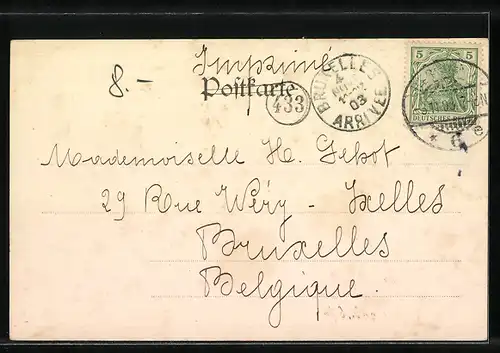 Imprimé
8.-
Postkarte
433
BRUXELLES
03
ARRIVÉE
5 5
Mademoiselle H. Gebot
29 Rue Wéry - Ixelles
Bruxelles
Belgique.